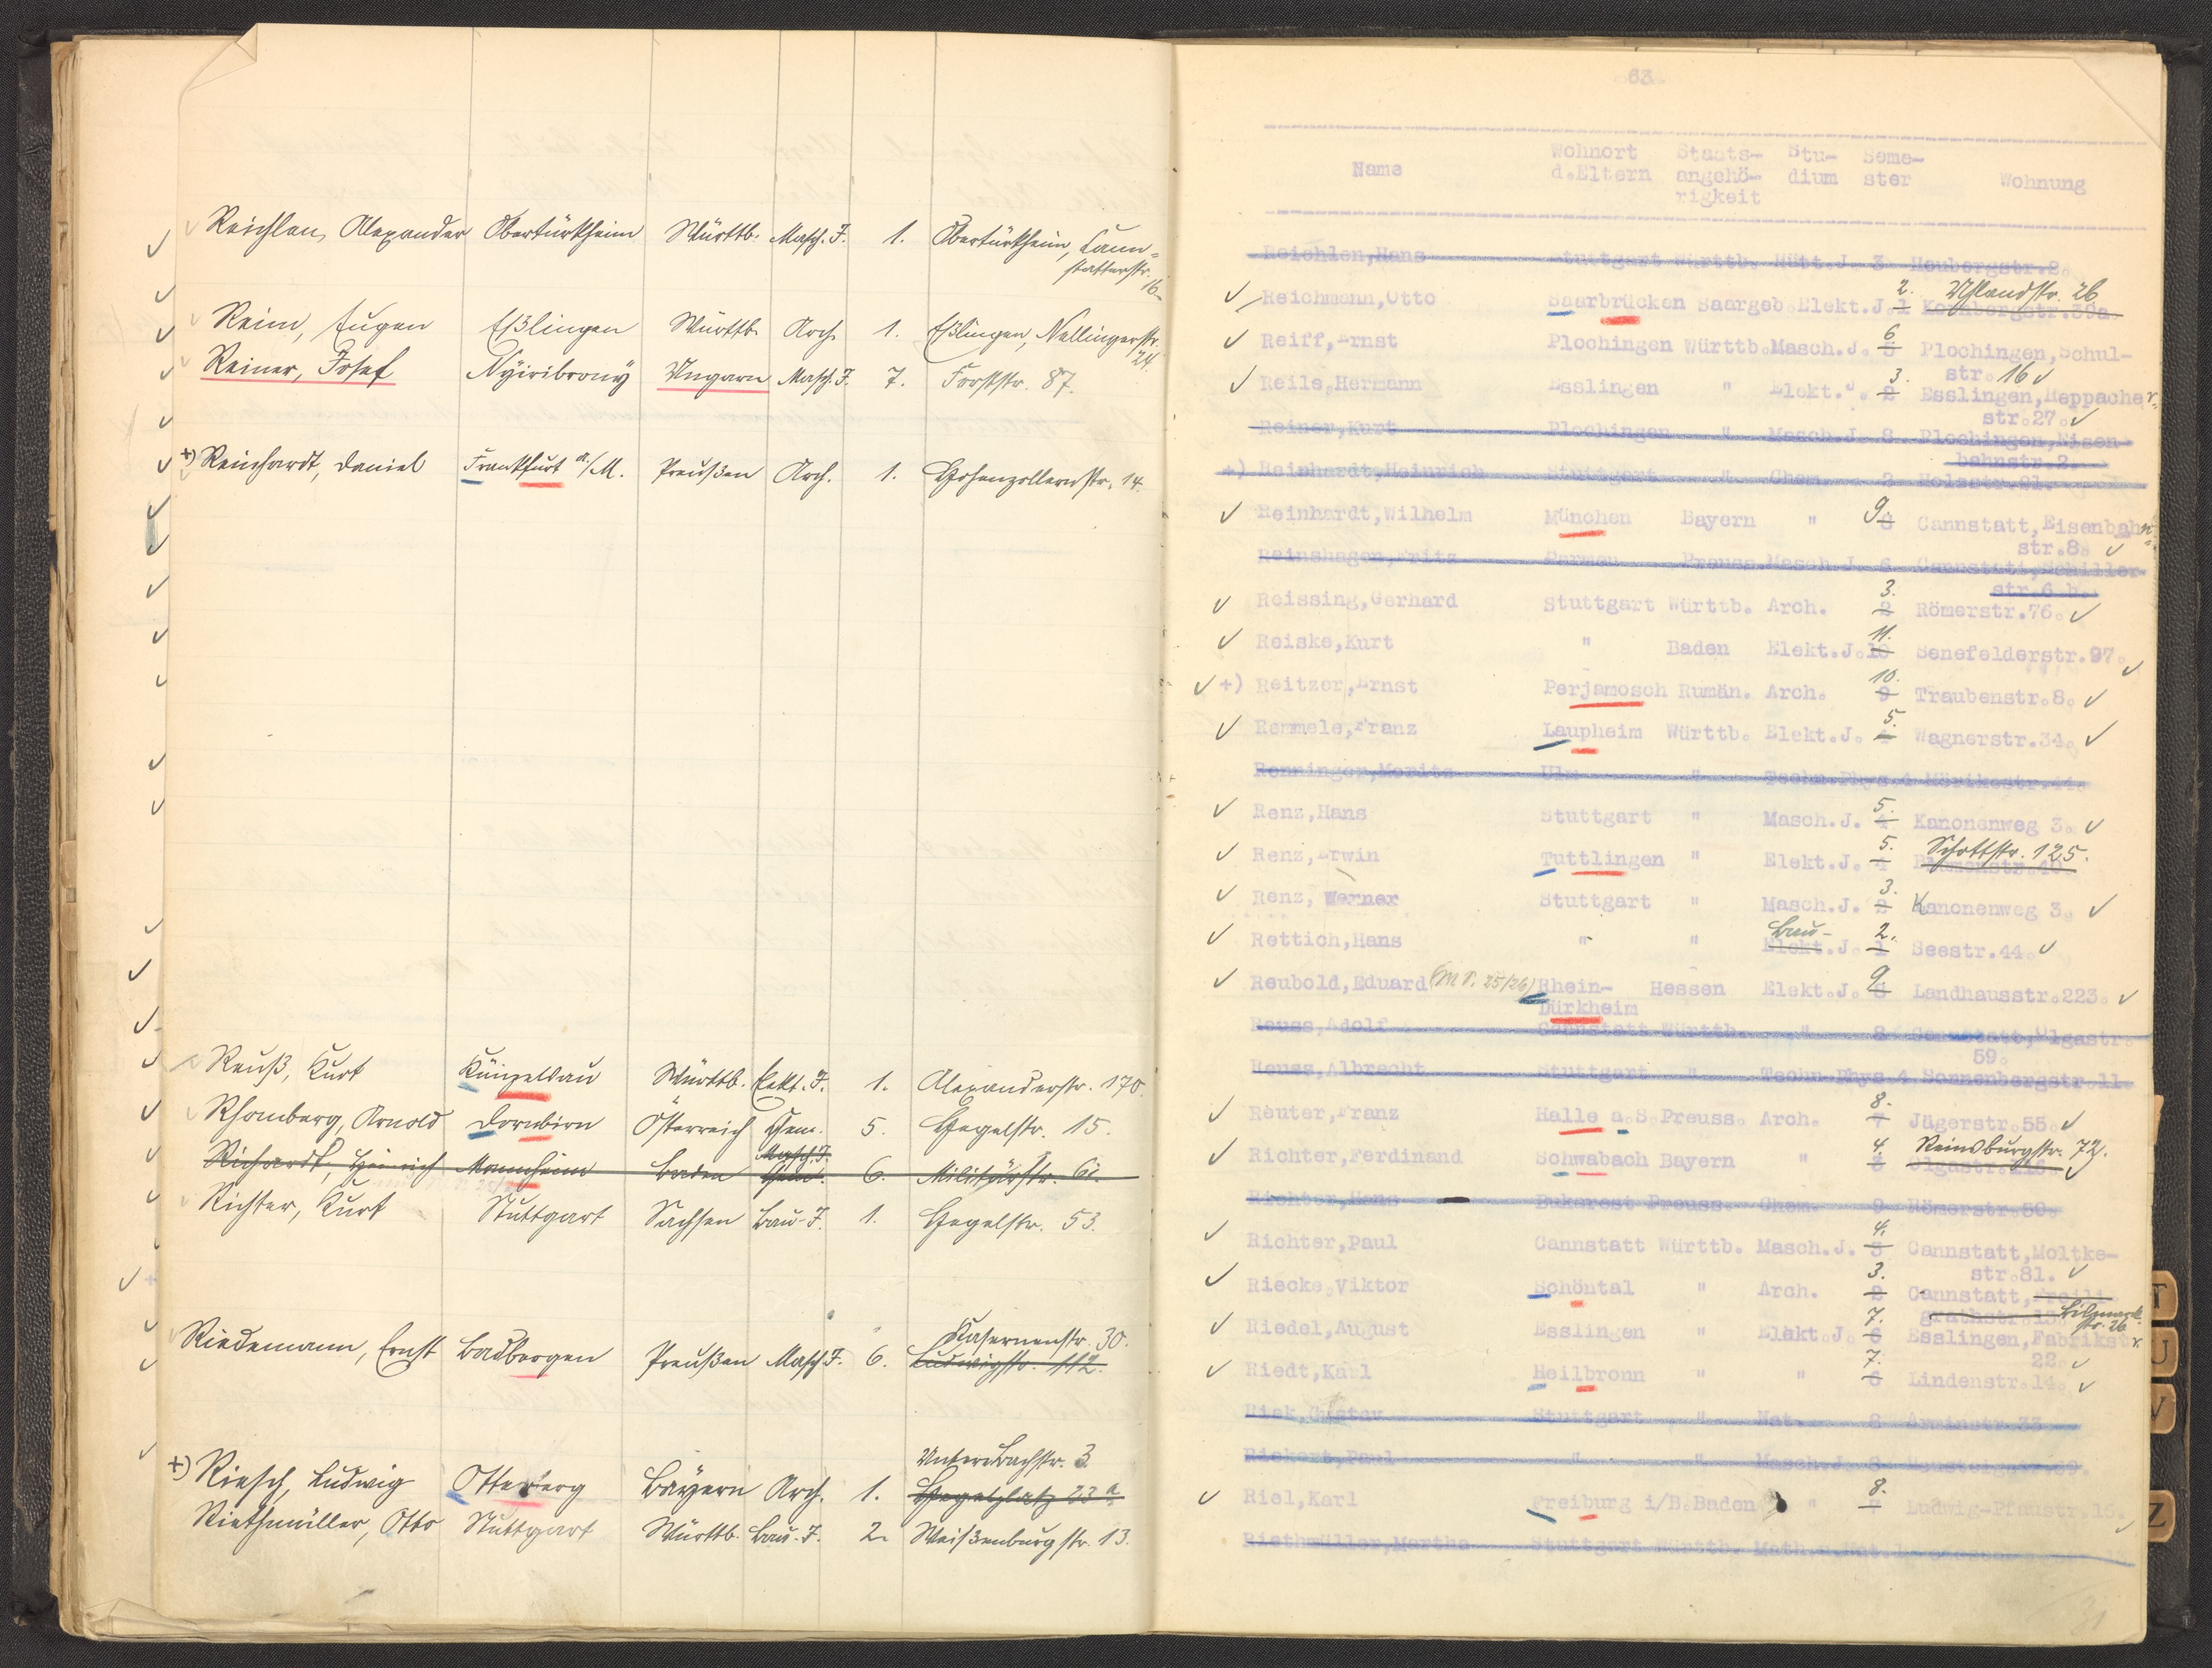 Reichlen, Alexander Obertürkheim Württb. Masch. J. 1. Obertürkheim, Cann-
statterstr.
16.
Reim, Eugen Eßlingen Württb. Arch. 1. Eßlingen, Nellingerstr.
24.
Reiner, Josef Nyiribrony Ungarn Masch. J. 7. Forststr. 87.
+) Reinhardt, Daniel Frankfurt a./M. Preußen Arch. 1. Hohenzollernstr. 14.
Reuß, Kurt Künzelsau Württb. Elekt. J. 1. Alexanderstr. 170.
Rhomberg, Arnold Dornbirn Österreich Chem. 5. Hegelstr. 15.
Masch. J.
Richardt, Heinrich Mannheim Baden Chem. 6. Militärstr. 61.
Richter, Kurt Stuttgart Sachsen Bau-J. 1. Hegelstr. 53.
Kasernenstr. 30.
Riedemann, Ernst Badbergen Preußen Masch J. 6. Ludwigstr. 112.
Untere Bachstr. 3.
+) Riesch, Ludwig Otterberg Bayern Arch. 1. Hegelplatz 23 a
Riethmüller, Otto Stuttgart Württb. Bau-J. 2. Weißenburgstr. 13.
63
Name Wohnort d.Eltern Staats-angehö-rigkeit Stu-dium Seme-ster Wohnung
Reichlen,Hans Stuttgart Württb. Hütt.J. 3 Heubergstr.2.
2. Uhlandstr. 26
Reichmann,Otto Saarbrücken Saargeb.Elekt.J.1 Kornbergstr.39a.
6.
Reiff,Ernst Plochingen Württb.Masch.J. 5 Plochingen,Schul-
str. 16
3.
Reile,Hermann Esslingen " Elekt.J. 2 Esslingen,Heppacher-
str.27.
Reiner,Kurt Plochingen " Masch.J. 8 Plochingen,Eisen-
bahnstr.2.
+) Reinhardt,Heinrich Stuttgart " Chem. 2 Holzstr.21.
Reinhardt,Wilhelm München Bayern " 9 8 Cannstatt,Eisenbahn-
str.8.
Reinshagen,Fritz Barmen Preuss.Masch.J. 6 Cannstatt,Schiller-
str.6 b.
3.
Reissing,Gerhard Stuttgart Württb. Arch. 2 Römerstr.76.
11.
Reiske,Kurt " Baden Elekt.J.10 Senefelderstr.97.
10.
+) Reitzer,Ernst Perjamosch Rumän. Arch. 9 Traubenstr.8.
5.
Remmele,Franz Laupheim Württb. Elekt.J. 4 Wagnerstr.34.
Renninger,Moritz Ulm " Techn.Phys.4 Mörikestr.44.
5.
Renz,Hans Stuttgart " Masch.J. 4 Kanonenweg 3.
5. Schottstr. 125.
Renz,Erwin Tuttlingen " Elekt.J. 4 Blumenstr.40
3.
Renz, Werner Stuttgart " Masch.J. 2 Kanonenweg 3.
Bau- 2.
Rettich,Hans " " Elekt.J. 1 Seestr.44.
Reubold,Eduard (M V. 25/26) Rhein- Hessen Elekt.J. 9 8 Landhausstr.223.
Dürkheim
Reuss,Adolf Cannstatt Württb. " 8 Cannstatt,Olgastr.
59.
Reuss,Albrecht Stuttgart " Techn.Phys.4 Sonnenbergstr.11.
8.
Reuter,Franz Halle a.S.Preuss. Arch. 7 Jägerstr.55.
4. Reinsburgstr. 72.
Richter,Ferdinand Schwabach Bayern " 3 Olgastr.
Richter,Hans Bukarest Preuss. Chem. 9 Römerstr.50.
4.
Richter,Paul Cannstatt Württb. Masch.J. 3 Cannstatt,Moltke-
str.81.
3.
Riecke,Viktor Schöntal " Arch. 2 Cannstatt,Freili-
grathstr.13. Bismarck-
str. 26
7.
Riedel,August Esslingen " Elekt.J. 6 Esslingen,Fabrikstr.
22.
7.
Riedt,Karl Heilbronn " " 6 Lindenstr.14.
Riek,Gustav Stuttgart " Nat. 8 Arminstr.33
Riekert,Paul " " Masch.J. 8
8.
Riel,Karl Freiburg i/B.Baden " 7 Ludwig-Pfaustr.15.
Riethmüller,Martha Stuttgart Württb. Math.u.Nat.1
T
U
V
Z